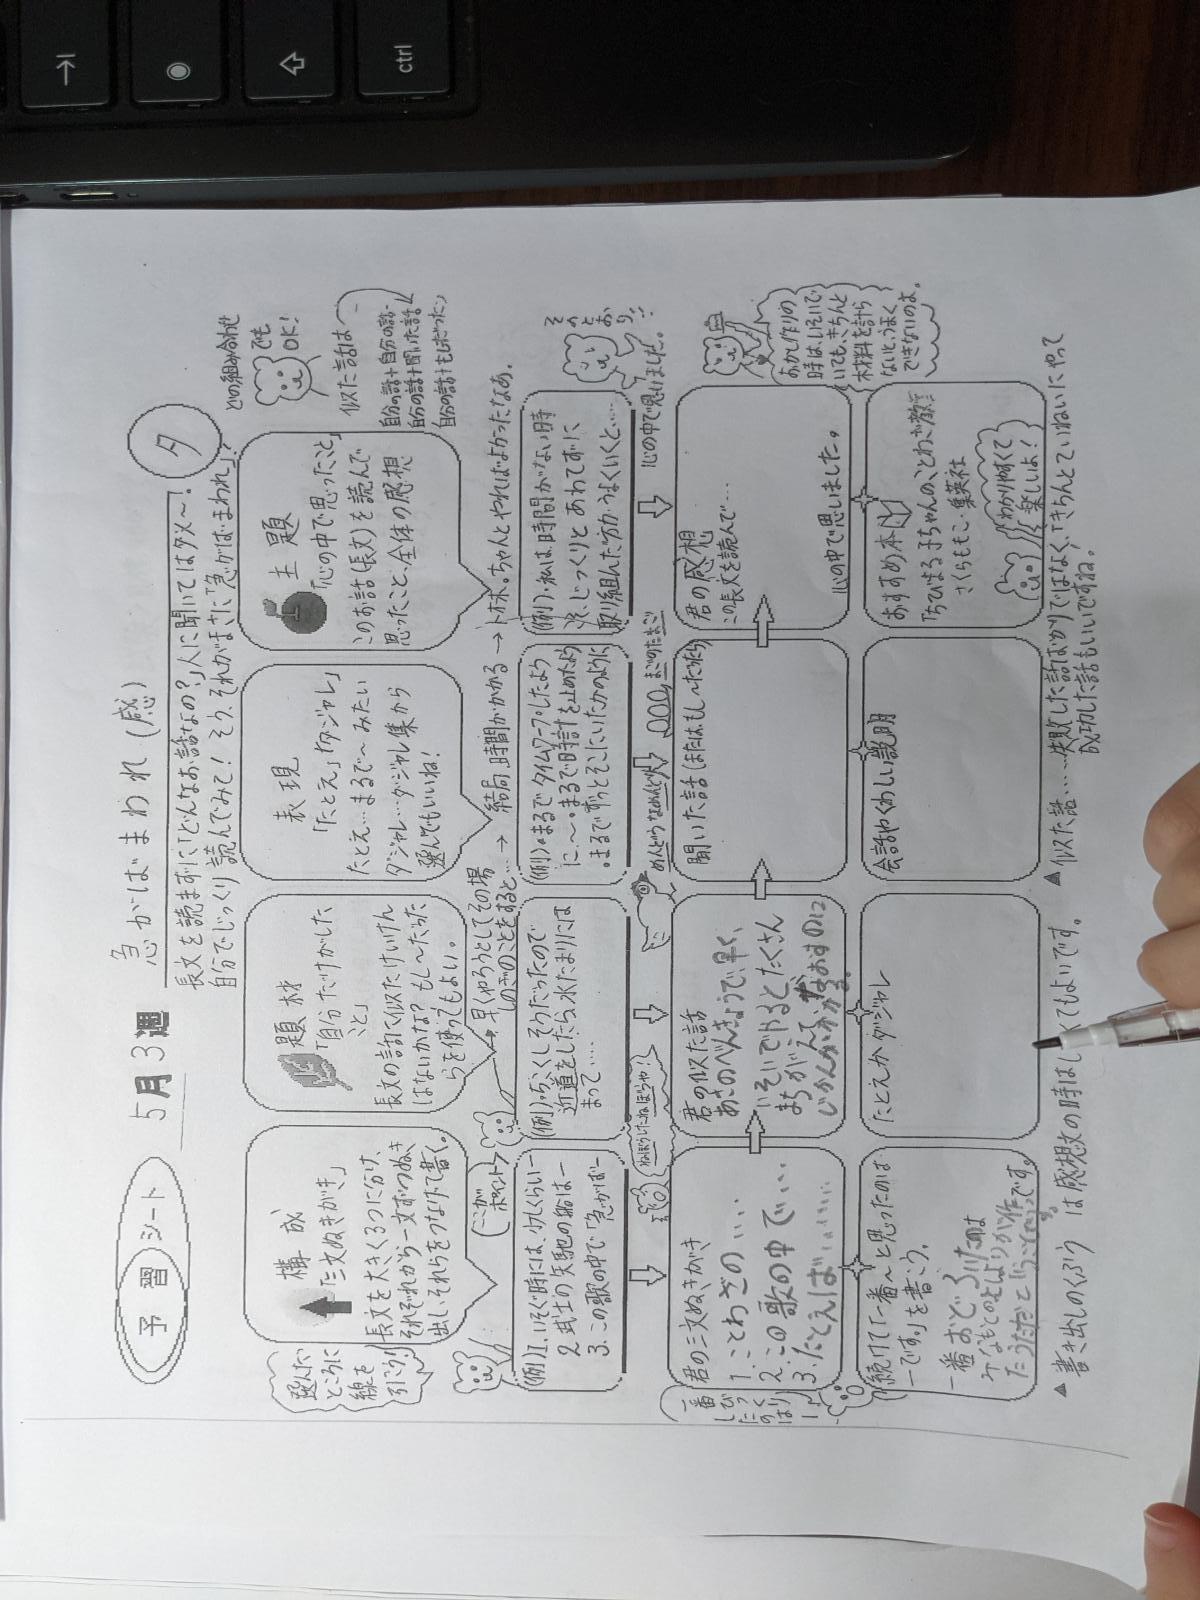 予習シート 5月3週
急がばまわれ(感)
タ
長文を読まずに、「どんなお話なの?」人に聞いてはダメ~!
自分でじっくり読んでみて!そう、それがまさに「急がばまわれ」!
選んだ
ところに
線を
引こう!
構成
「三文ぬきがき」
長文を大きく3つに分け、
それぞれから一文ずつぬき
出し、それらをつなげて書く。
題材
「自分だけがした
こと」
長文の話に似たたいけん
はないかな?もし~だった
らを使ってもよい。
表現
「たとえ」「ダジャレ」
たとえ…まるで~みたい
ダジャレ…ダジャレ集から
選んでもいいね!
主題
「心の中で思ったこと」
このお話(長文)を読んで
思ったこと、全体の感想
どの組み合わせ
でも
OK!
似た話は
自分の話+自分の話
自分の話+聞いた話
自分の話+もしだったら
ここが
ポイント
早くやろうとしてその場
しのぎのことをすると…→
結局、時間がかかる→
ちゃんとやればよかったなあ。
(例)1.いそぐ時には、少しくらい―
2.武士の矢馳の船は―
3.この歌の中で「急がば―
(例)・ちこくしそうだったので
近道をしたら水たまりには
まって……
(例)・まるでタイムワープしたよう
に~。・まるで時計を止めたよう
・まるでずっとそこにいたかのように
(例)・私は、時間がない時
ほど、じっくりとあわてずに
取り組んだ方がうまくいくと……
心の中で思いました。
そのとおり!!
ねぼうしたねぼらや!
めんどうなめんどり
まごのたまご
一番
しびったく
のはり
君の三文ぬきがき
1.ことわざの…
2.この歌の中で…
3.たとえば……
君の似た話
あさのべんきょうで、早く、
いそいでやるとたくさん
まちがえて、なおすのに
じかんがかかる。
聞いた話(または、もし~だったら)
君の感想
この長文を読んで…
心の中で思いました。
おかし作りの
時は、いそいで
いても、きちんと
材料を計ら
ないと、うまく
できないのよ。
続けて「一番~と思ったのは
―です。」を書こう。
一番おどろいたのは
みなもとのとしよりが作っ
たうただということです。
たとえかダジャレ
会話やくわしい説明
おすすめ本
「ちびまる子ちゃんのことわざ教室」
さくらももこ 集英社
わかりやすくて
楽しいよ!
▲書き出しのくふう は感想文の時はしなくてもよいです。
▲似た話……失敗した話ばかりではなく、「きちんとていねいにやって
成功した話もいいですね。
ctrl